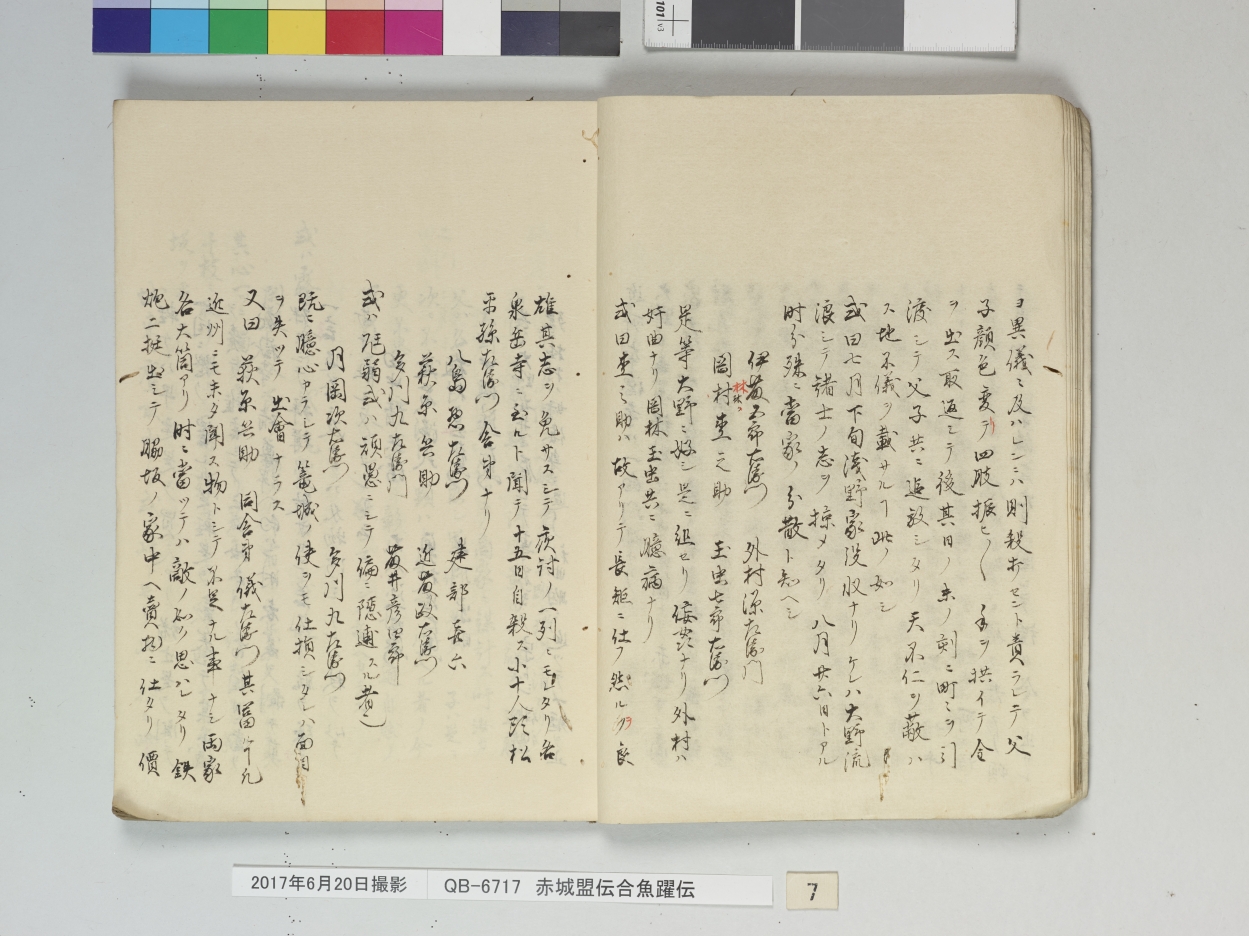 ヨ異儀ニ及ハレンニハ則殺サセント責ヘラレテ父
子顔色変テ四肢振セ〱手ヲ拱イテ金
ヲ出ス取返シテ後其日ノ未ノ刻ニ町ミヲ引
渡シテ父子共ニ追放シタリ天不仁ヲ蔽ハ
ス地不儀ヲ載サルヿ此ノ如シ
或曰七月下旬浅野家没収ナリケレハ大野流
浪シテ諸士ノ志ヲ掠メタリ八月廿六日トアル
時分殊ニ當家ノ分散ト知ヘシ
伊藤五郎左衛門 外村源左衛門
岡村杢之助 玉虫七郎右衛門
林カ
是等大野ニ好シ是ニ組セリ佞姦ナリ外村ハ
奸曲ナリ岡林玉虫共ニ臆病ナリ
或曰杢之助ハ故アリテ長矩ニ仕フ然ルヲ良
雄其志ヲ免サスシテ復討ノ一列ニモレタリ各
泉岳寺ニ至ルト聞テ十五日自殺ス小十人頭松
平孫左衛門舎弟ナリ
八島惣左衛門 建部喜六
萩原兵助 近藤政右衛門
多川九左衛門 藤井彦四郎
或ハ尫弱或ハ頑愚ニシテ偏ニ隠逋スル者也
月岡次右衛門 多川九左衛門
既ニ臆心アラシテ篭城ノ使ヲモ仕損シタレハ面目
ヲ失ツテ出會ナラス
又曰 萩原兵助 同舎弟儀左衛門其富ルヿ凡
近州ニモ未タ聞ス物トシテ不足ナル事ナシ両家
各大筒アリ時ニ當ツテハ敵ノ如ク思ハレタリ鉄
炮二挺出シテ脇坂ノ家中ヘ賣物ニ仕タリ價
2017年6月20日撮影 QB-6717 赤城盟伝合魚躍伝
7
101 v3